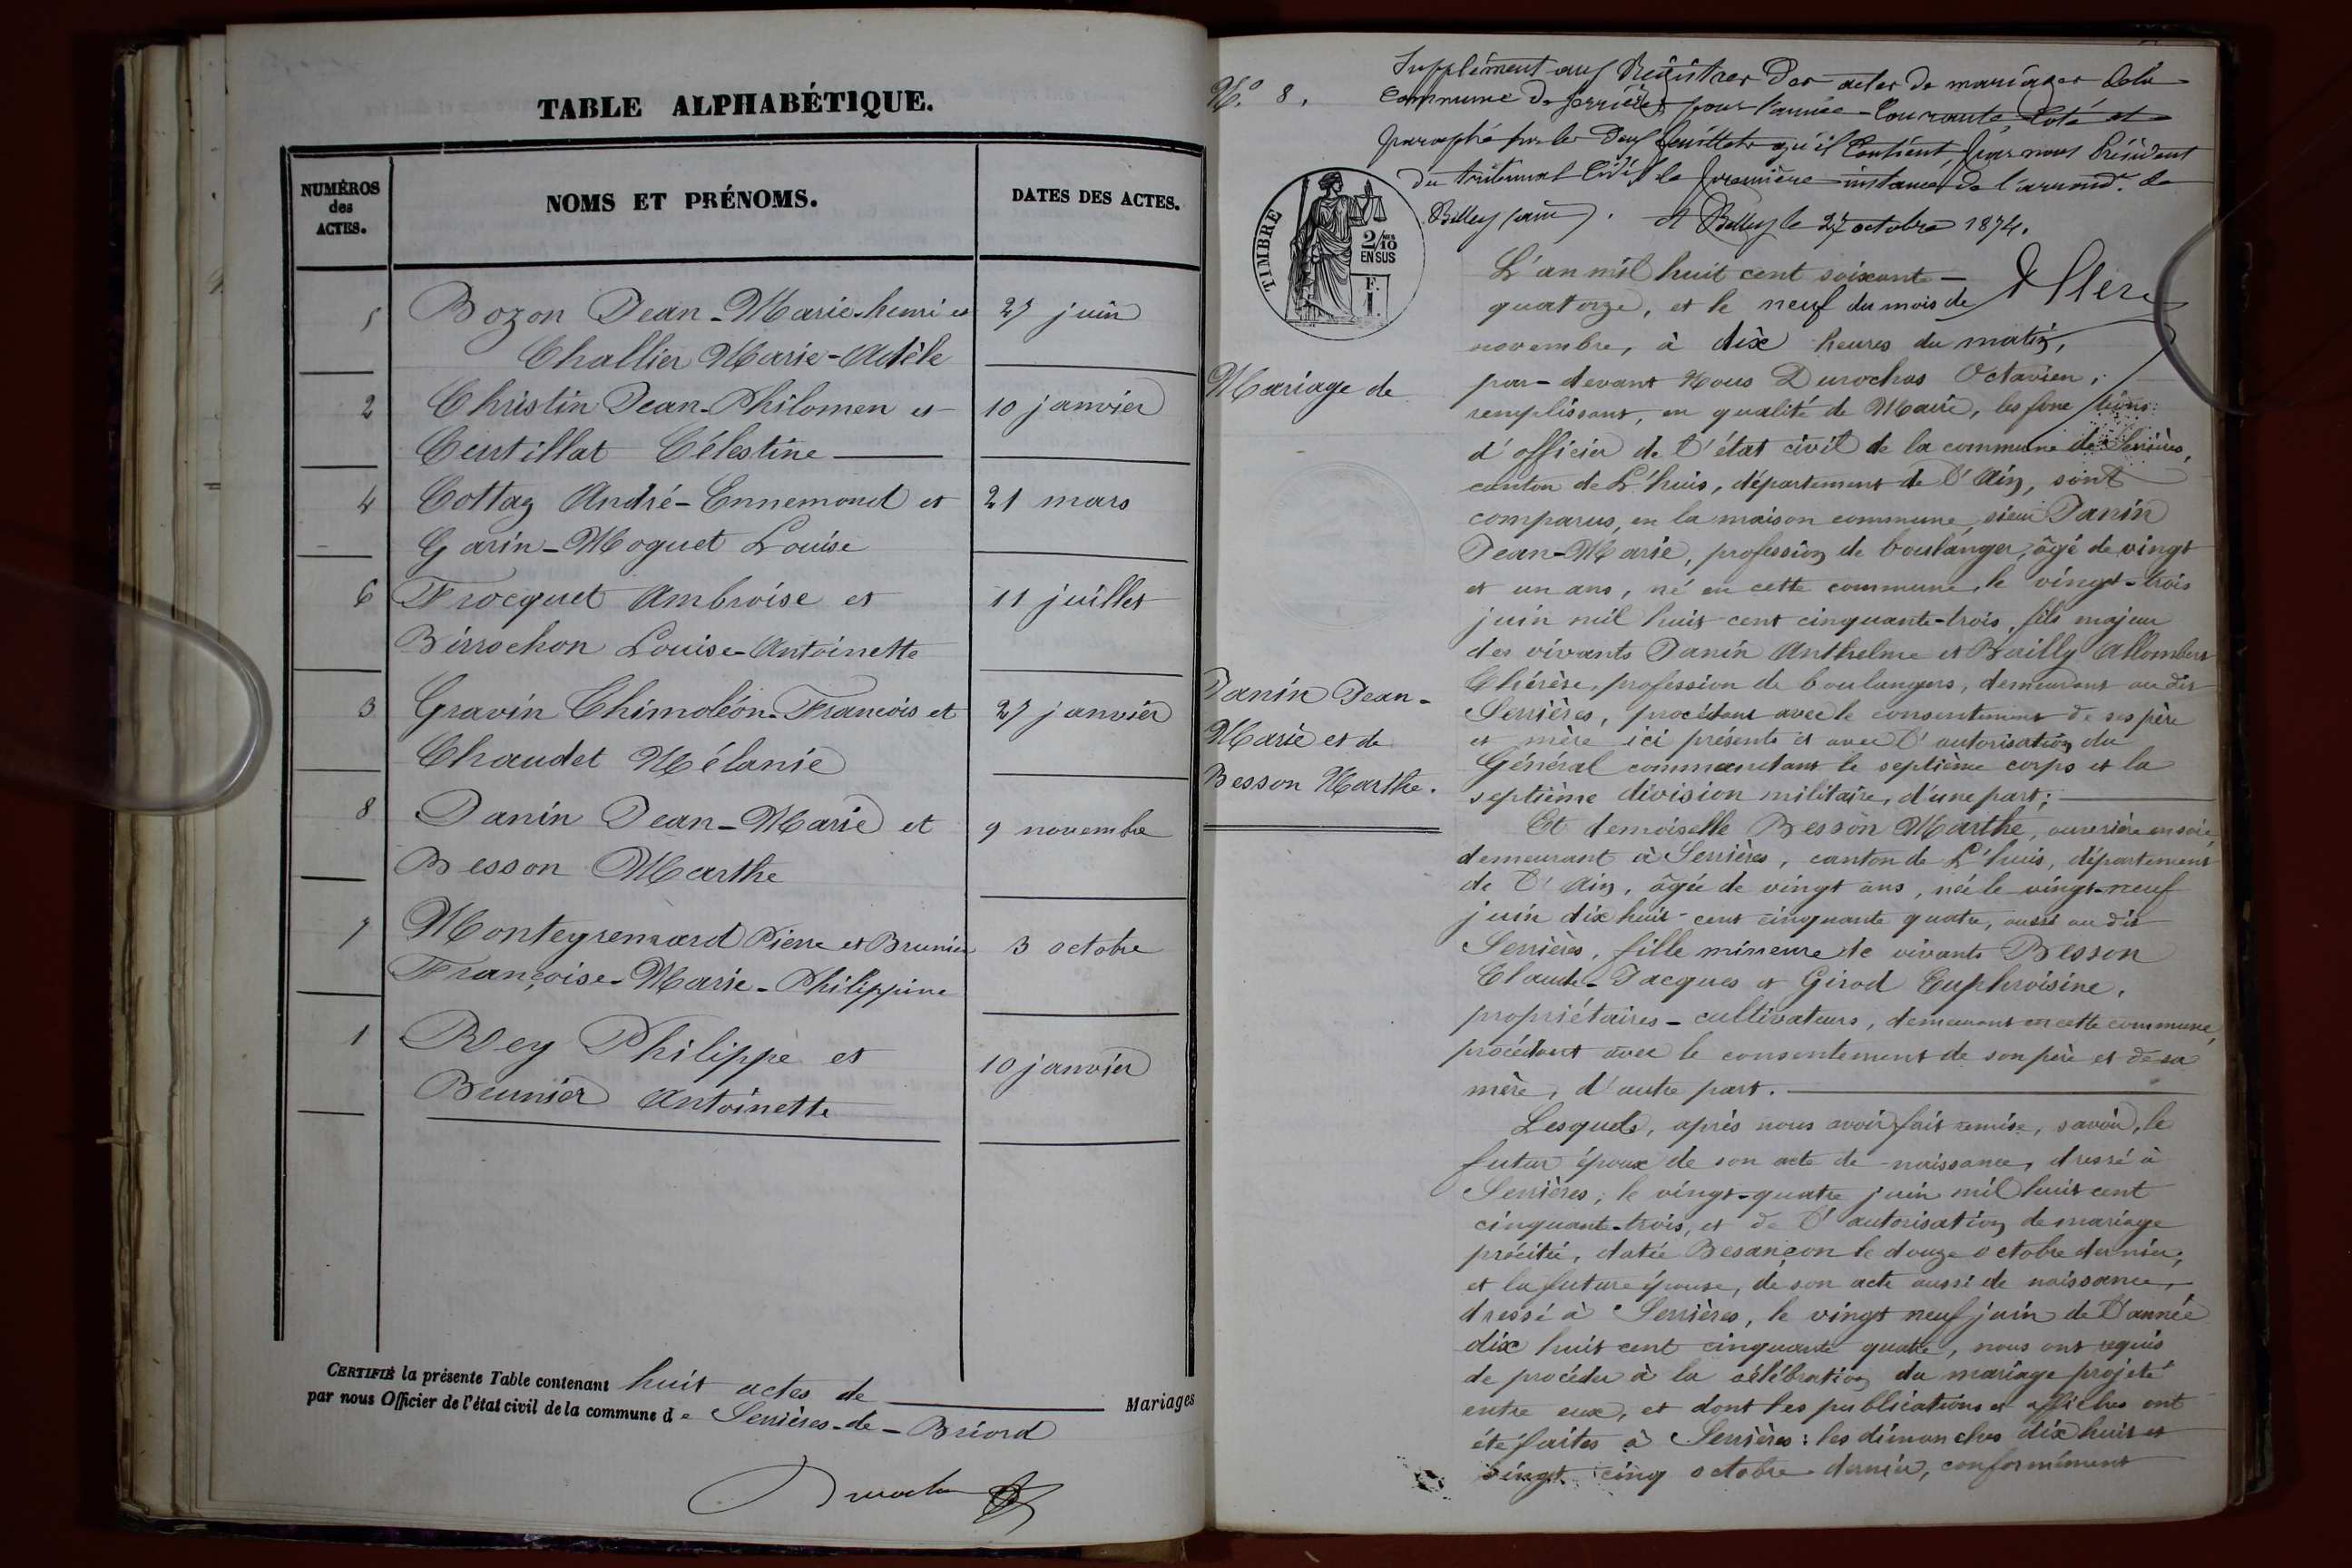 TABLE ALPHABÉTIQUE.
NUMÉROS des ACTES.
NOMS ET PRÉNOMS.
DATES DES ACTES.
5 Bozon Jean-Marie-henri et 27 juin
Challier Marie-Adèle
2 Christin Jean-Philomen et 10 janvier
Centillat Célestine
4 Cottaz André-Ennemond et 21 mars
Garin-Moguet Louise
6 Frocquet Ambroise et 11 juillet
Birrochon Louise-Antoinette
3 Gravin Thimoléon-François et 27 janvier
Chaudet Mélanie
8 Janin Jean-Marie et 9 novembre
Besson Marthe
7 Monteyremard Pierre et Brunier 3 octobre
Françoise-Marie-Philippine
1 Rey Philippe et 10 janvier
Brunier Antoinette
CERTIFIÉ la présente Table contenant huit actes de Mariages
par nous Officier de l'état civil de la commune de Serrières-de-Briord
N.° 8.
Supplément aux Registres des actes de mariages de la
Commune de Serrières pour l'année Courante, Coté et
paraphé par les deux feuillets qu'il Contient, par nous Président
du tribunal Civil de première instance de l'arrond.t de
Belley (ain). A Belley le 27 octobre 1874.
TIMBRE
2/10 EN SUS
F.
1.
L'an mil huit cent soixante-
quatorze, et le neuf du mois de
novembre, à dix heures du matin,
Mariage de
Janin Jean-
Marie et de
Besson Marthe.
par-devant Nous Durochas Octavien,
remplissant, en qualité de Maire, les fonctions
d'officier de l'état civil de la commune de Serrières,
canton de L'huis, département de l'Ain, sont
comparus, en la maison commune, sieur Janin
Jean-Marie, profession de boulanger, âgé de vingt
et un ans, né en cette commune, le vingt-trois
juin mil huit cent cinquante-trois, fils majeur
des vivants Janin Anthelme et Bailly Allombert
Thérèse, profession de boulangers, demeurant au dit
Serrières, procédant avec le consentement de ses père
et mère ici présents et avec l'autorisation du
Général commandant le septième corps et la
septième division militaire, d'une part;
Et demoiselle Besson Marthe, ouvrière en soie
demeurant à Serrières, canton de L'huis, département
de l'Ain, âgée de vingt ans, née le vingt-neuf
juin dix huit-cent cinquante quatre, aussi au dit
Serrières, fille mineure de vivants Besson
Claude-Jacques et Girod Euphroisine,
propriétaires-cultivateurs, demeurant en cette commune,
procédant avec le consentement de son père et de sa
mère, d'autre part.
Lesquels, après nous avoir fait remise, savoir, le
futur époux de son acte de naissance, dressé à
Serrières, le vingt-quatre juin mil huit cent
cinquante-trois, et de l'autorisation de mariage
précitée, datée Besançon le douze octobre dernier;
et la future épouse, de son acte aussi de naissance,
dressé à Serrières, le vingt neuf juin de l'année
dix huit cent cinquante quatre, nous ont requis
de procéder à la célébration du mariage projeté
entre eux, et dont les publications et affiches ont
été faites à Serrières: les dimanches dix huit et
vingt cinq octobre dernier, conformément